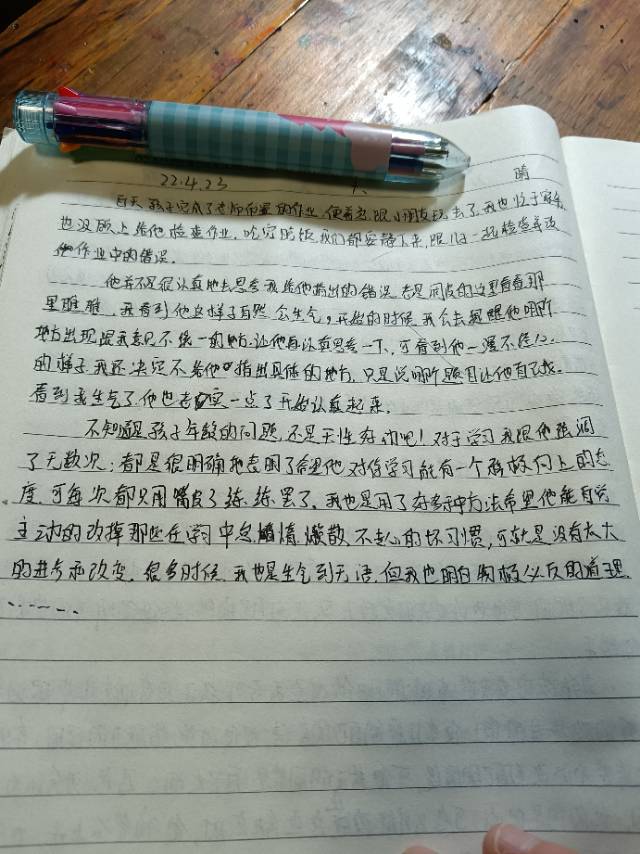 22.4.23 六 晴
白天孩子完成了老师布置的作业,便着急跟小朋友玩去了,我也忙于家务
也没顾上给他检查作业,吃完晚饭,我们都安静下来,跟儿一起检查并改
他作业中的错误。
他并不是很认真地去思考我给他指出的错误,老是调皮的这里看看,那
里瞧瞧,我看到他这样子自然会生气,开始的时候,我会去提醒他哪个
地方出现跟我意见不统一的地方,让他再认真思考一下,可看到他一漫不经心
的样子,我还决定不给他指出具体的地方,只是说哪个题目让他自己找。
看到我生气了,他也老实一点了开始认真起来。
不知道是孩子年龄的问题,还是天性好动吧!对于学习我跟他强调
了无数次;都是很明确地表明了希望他对待学习能有一个积极向上的态
度,可每次都只用嘴皮子练练罢了,我也是用了好多种方法希望他能自觉
主动的改掉那些在学习中怠惰懒散,不走心的坏习惯,可就是没有太大
的进步和改变。很多时候,我也是生气到无语,但我也明白物极必反的道理,
……